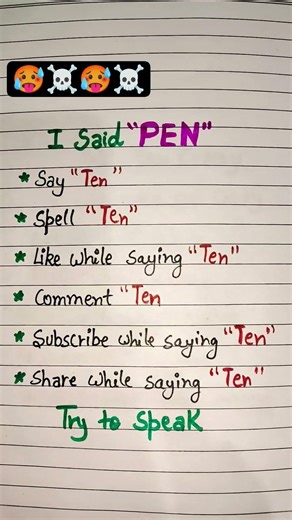 I Said "PEN"
* Say "Ten"
* Spell "Ten"
* Like while saying "Ten"
* Comment "Ten
* Subscribe while saying "Ten"
* Share while saying "Ten"
Try to Speak